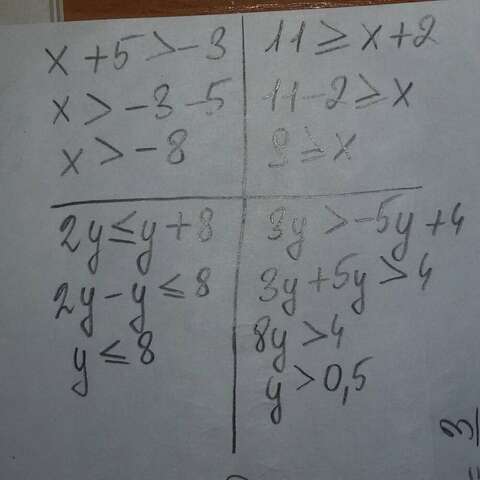 x + 5 > -3
x > -3 - 5
x > -8
11 ≥ x + 2
11 - 2 ≥ x
9 ≥ x
2y ≤ y + 8
2y - y ≤ 8
y ≤ 8
3y > -5y + 4
3y + 5y > 4
8y > 4
y > 0,5
3
=